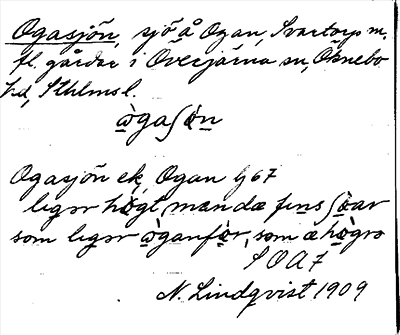 Ogasjön, sjö å Ogan, Svartorp m.
fl. gårdar i Överjärna sn, Öknebo
hd, Sthlms l.
ωgaʃön
Ogasjön ek, Ogan G67
ligər högt, mæn dæ fins ʃöar
som ligər ωganför, som æ högrə
SOA7
N. Lindqvist 1909